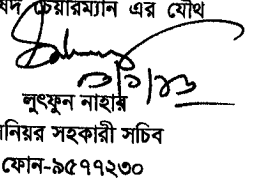 ষদ চেয়ারম্যান এর যৌথ
লুৎফুন নাহার
নিয়র সহকারী সচিব
ফোন-৯৫৭৭২৩০